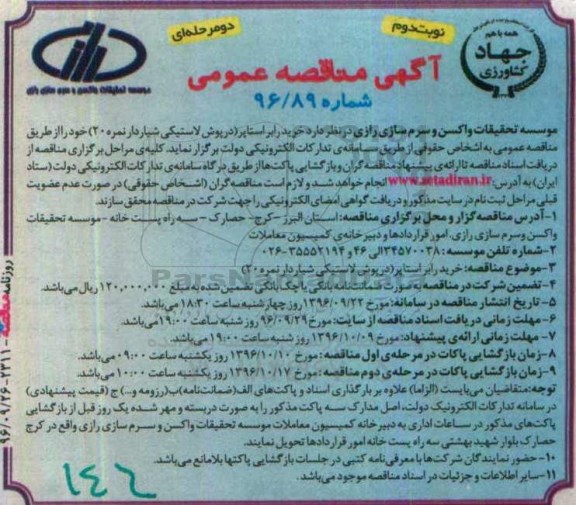 همه با هم
جهاد
کشاورزی
نوبت دوم
دو مرحله‌ای
موسسه تحقیقات واکسن و سرم سازی رازی
آگهی مناقصه عمومی
شماره ۹۶/۸۹
موسسه تحقیقات واکسن و سرم سازی رازی در نظر دارد خرید رابر استاپر (درپوش لاستیکی شیار دار نمره ۲۰) خود را از طریق
مناقصه عمومی به اشخاص حقوقی از طریق سامانه‌ی تدارکات الکترونیکی دولت برگزار نماید. کلیه‌ی مراحل برگزاری مناقصه از
دریافت اسناد مناقصه تا ارائه‌ی پیشنهاد مناقصه گران و بازگشایی پاکت‌ها از طریق درگاه سامانه‌ی تدارکات الکترونیکی دولت (ستاد
ایران) به آدرس: www.setadiran.ir انجام خواهد شد و لازم است مناقصه گران (اشخاص حقوقی) در صورت عدم عضویت
قبلی مراحل ثبت نام در سایت مذکور و دریافت گواهی امضای الکترونیکی را جهت شرکت در مناقصه محقق سازند.
۱- آدرس مناقصه گزار و محل برگزاری مناقصه: استان البرز - کرج - حصارک - سه راه پست خانه - موسسه تحقیقات
واکسن و سرم سازی رازی، امور قراردادها و دبیرخانه‌ی کمیسیون معاملات
۲- شماره تلفن موسسه: ۳۴۵۷۰۰۳۸ الی ۴۶ و ۳۵۵۵۲۱۹۴-۰۲۶
۳- موضوع مناقصه: خرید رابر استاپر (درپوش لاستیکی شیار دار نمره ۲۰)
۴- تضمین شرکت در مناقصه به صورت ضمانت نامه بانکی یا چک بانکی تضمین شده به مبلغ ۱۲۰,۰۰۰,۰۰۰ ریال می‌باشد.
۵- تاریخ انتشار مناقصه در سامانه: مورخ ۱۳۹۶/۰۹/۲۲ روز چهارشنبه ساعت ۱۸:۳۰ می‌باشد.
۶- مهلت زمانی دریافت اسناد مناقصه از سایت: مورخ ۹۶/۰۹/۲۹ روز شنبه ساعت ۱۹:۰۰ می‌باشد.
۷- مهلت زمانی ارائه‌ی پیشنهاد: مورخ ۱۳۹۶/۱۰/۰۹ روز شنبه ساعت ۱۹:۰۰ می‌باشد.
۸- زمان بازگشایی پاکات در مرحله‌ی اول مناقصه: مورخ ۱۳۹۶/۱۰/۱۰ روز یکشنبه ساعت ۰۹:۰۰ می‌باشد.
۹- زمان بازگشایی پاکات در مرحله‌ی دوم مناقصه: مورخ ۱۳۹۶/۱۰/۱۷ روز یکشنبه ساعت ۱۰:۰۰ می‌باشد.
توجه: متقاضیان می‌بایست (الزاما) علاوه بر بارگذاری اسناد و پاکت‌های الف (ضمانت‌نامه) ب (رزومه و..) ج (قیمت پیشنهادی)
در سامانه تدارکات الکترونیک دولت، اصل مدارک سه پاکت مذکور را به صورت دربسته و مهر شده یک روز قبل از بازگشایی
پاکت‌های مذکور در ساعات اداری به دبیرخانه کمیسیون معاملات موسسه تحقیقات واکسن و سرم سازی رازی واقع در کرج
حصارک بلوار شهید بهشتی سه راه پست خانه امور قراردادها تحویل نمایند.
۱۰- حضور نمایندگان شرکت‌ها با معرفی نامه کتبی در جلسات بازگشایی پاکتها بلامانع می‌باشد.
۱۱- سایر اطلاعات و جزئیات در اسناد مناقصه موجود می‌باشد.
۱۴۶
روزنامه مناقصه - ۲۳۱۱ - ۹۶/۰۹/۲۶